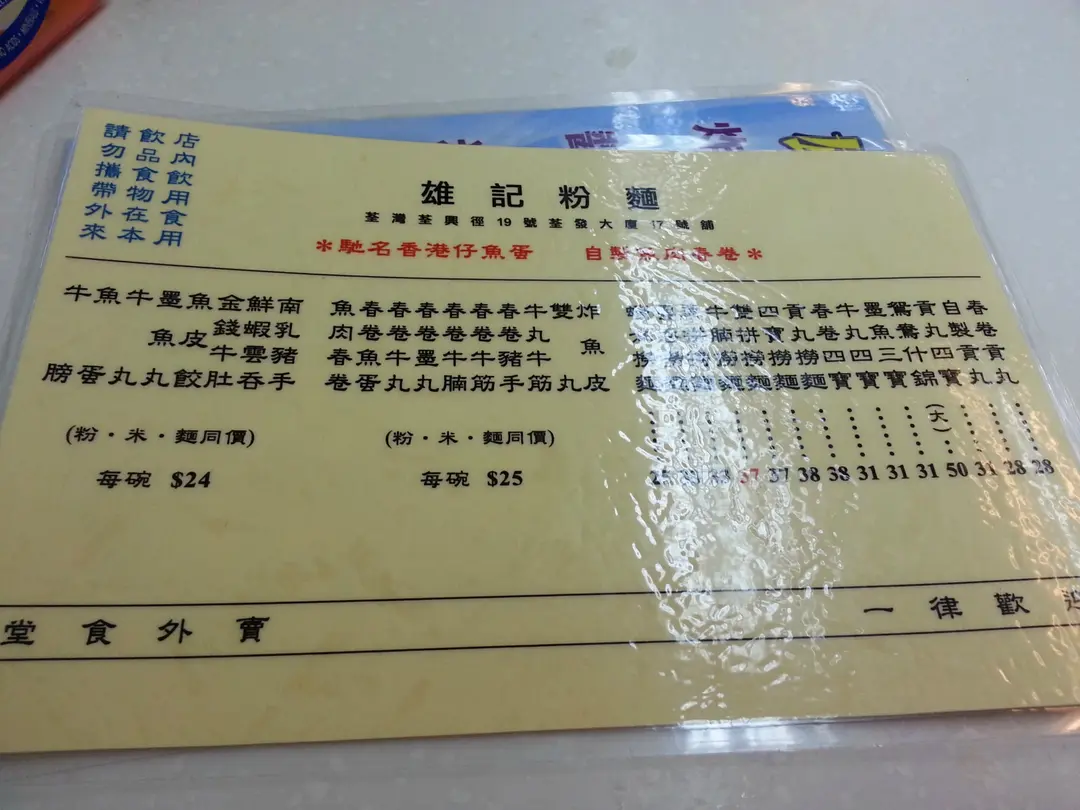 請勿攜帶外來
飲品食物在本
店內飲用食用
雄記粉麵
荃灣荃興徑19號荃發大廈17號舖
*馳名香港仔魚蛋 自製肉春卷*
牛膀
魚蛋
牛丸
墨丸
魚皮餃
金錢牛肚
鮮蝦雲吞
南乳豬手
(粉·米·麵同價)
每碗 $24
魚肉春卷
春卷魚蛋
春卷牛丸
春卷墨丸
春卷牛腩
春卷牛筋
春卷豬手
牛丸牛筋
雙丸
炸魚皮
(粉·米·麵同價)
每碗 $25
牛腩撈麵 37
雙拼撈麵 37
四寶撈麵 38
貢丸撈麵 38
春卷四寶 31
牛丸四寶 31
墨魚三寶 31
鴛鴦什錦(大) 50
貢丸四寶 31
自製貢丸 28
春卷貢丸 28
堂食外賣 一律歡迎